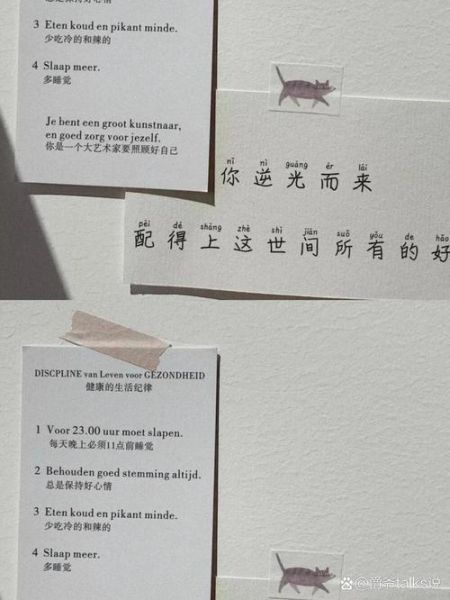 3 Eten koud en pikant minde.
少吃冷的和辣的
4 Slaap meer.
多睡觉
Je bent een groot kunstnaar,
en goed zorg voor jezelf.
你是一个大艺术家要照顾好自己
nǐ nì guāng ér lái
你逆光而来
pèi dé shàng zhè shì jiān suǒ yǒu de hǎo
配得上这世间所有的好
DISCPLINE van Leven voor GEZONDHEID
健康的生活纪律
1 Voor 23.00 uur moet slapen.
每天晚上必须11点前睡觉
2 Behouden goed stemming altijd.
总是保持好心情
3 Eten koud en pikant minde.
少吃冷的和辣的
4 Slaap meer.
多睡觉